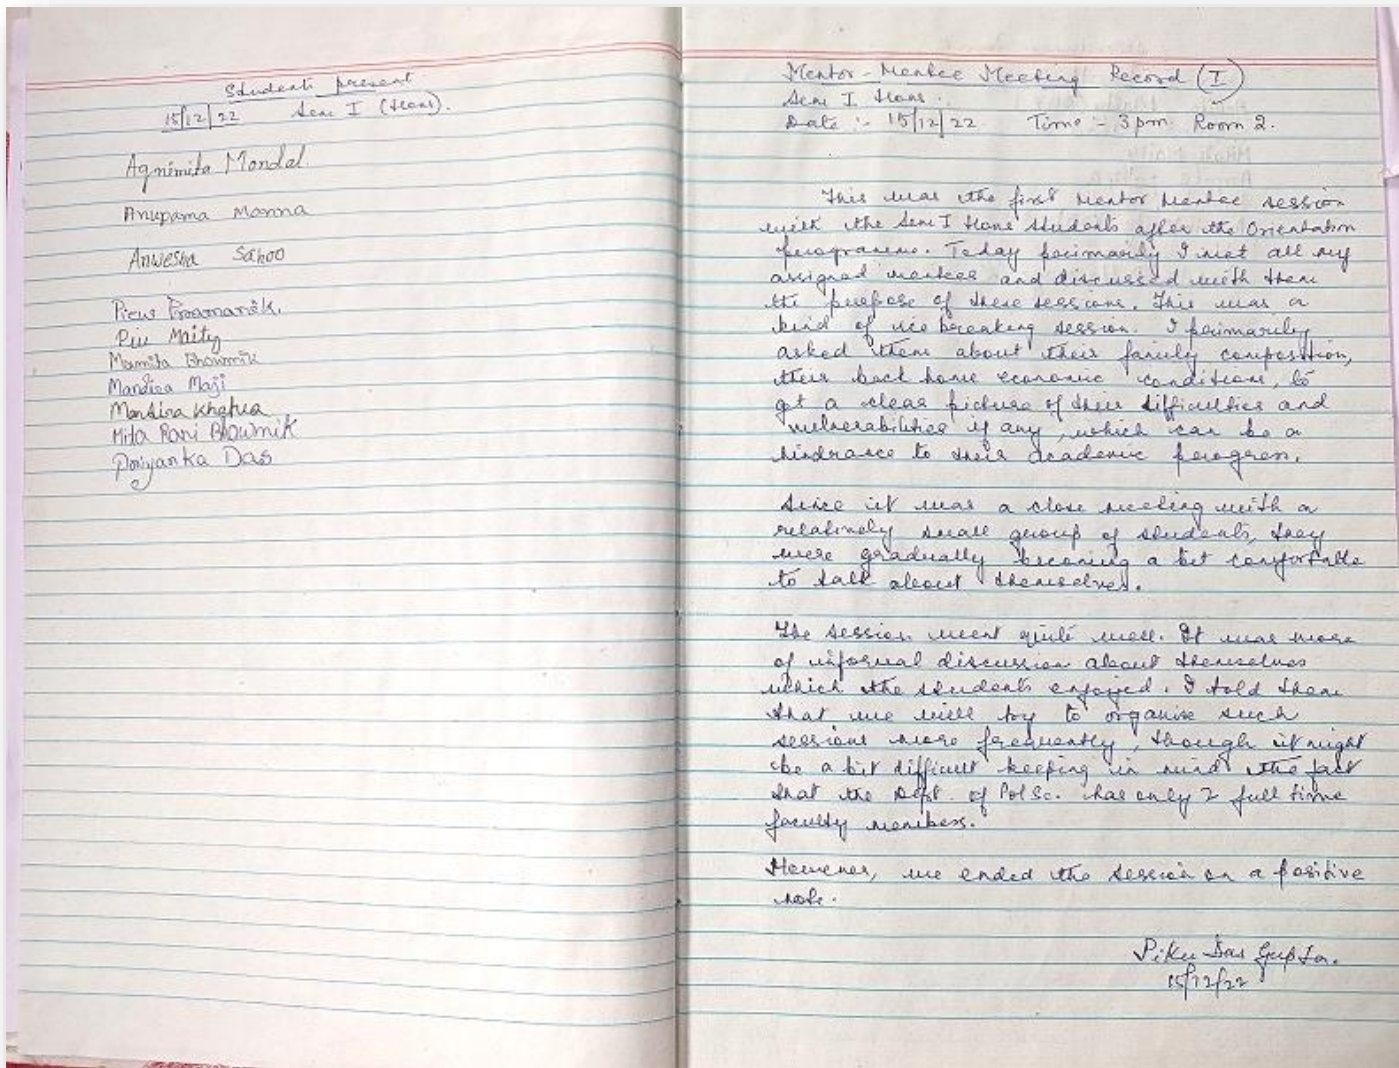 Students present
15/12/22 Sem I (Hons).
Agnimita Mondal.
Anupama Manna
Anwesha Sahoo
Pieu Pramanik.
Piu Maity
Mamita Bhowmik
Mandira Maji
Mandira Khatua
Mita Rani Bhowmik
Priyanka Das
Mentor-Mentee Meeting Record (I)
Sem I Hons.
Date :- 15/12/22 Time - 3 pm Room 2.
This was the first Mentor Mentee session
with the Sem I Hons students after the Orientation
programme. Today primarily I met all my
assigned mentees and discussed with them
the purpose of these sessions. This was a
kind of ice breaking session. I primarily
asked them about their family composition,
their back home economic conditions, to
get a clear picture of their difficulties and
vulnerabilities if any, which can be a
hindrance to their academic progress.
Since it was a close meeting with a
relatively small group of students, they
were gradually becoming a bit comfortable
to talk about themselves.
The session went quite well. It was more
of informal discussion about themselves
which the students enjoyed. I told them
that we will try to organise such
sessions more frequently, though it might
be a bit difficult keeping in mind the fact
that the Dept. of Pol Sc. has only 2 full time
faculty members.
However, we ended the session on a positive
note.
Piku Das Gupta.
15/12/22